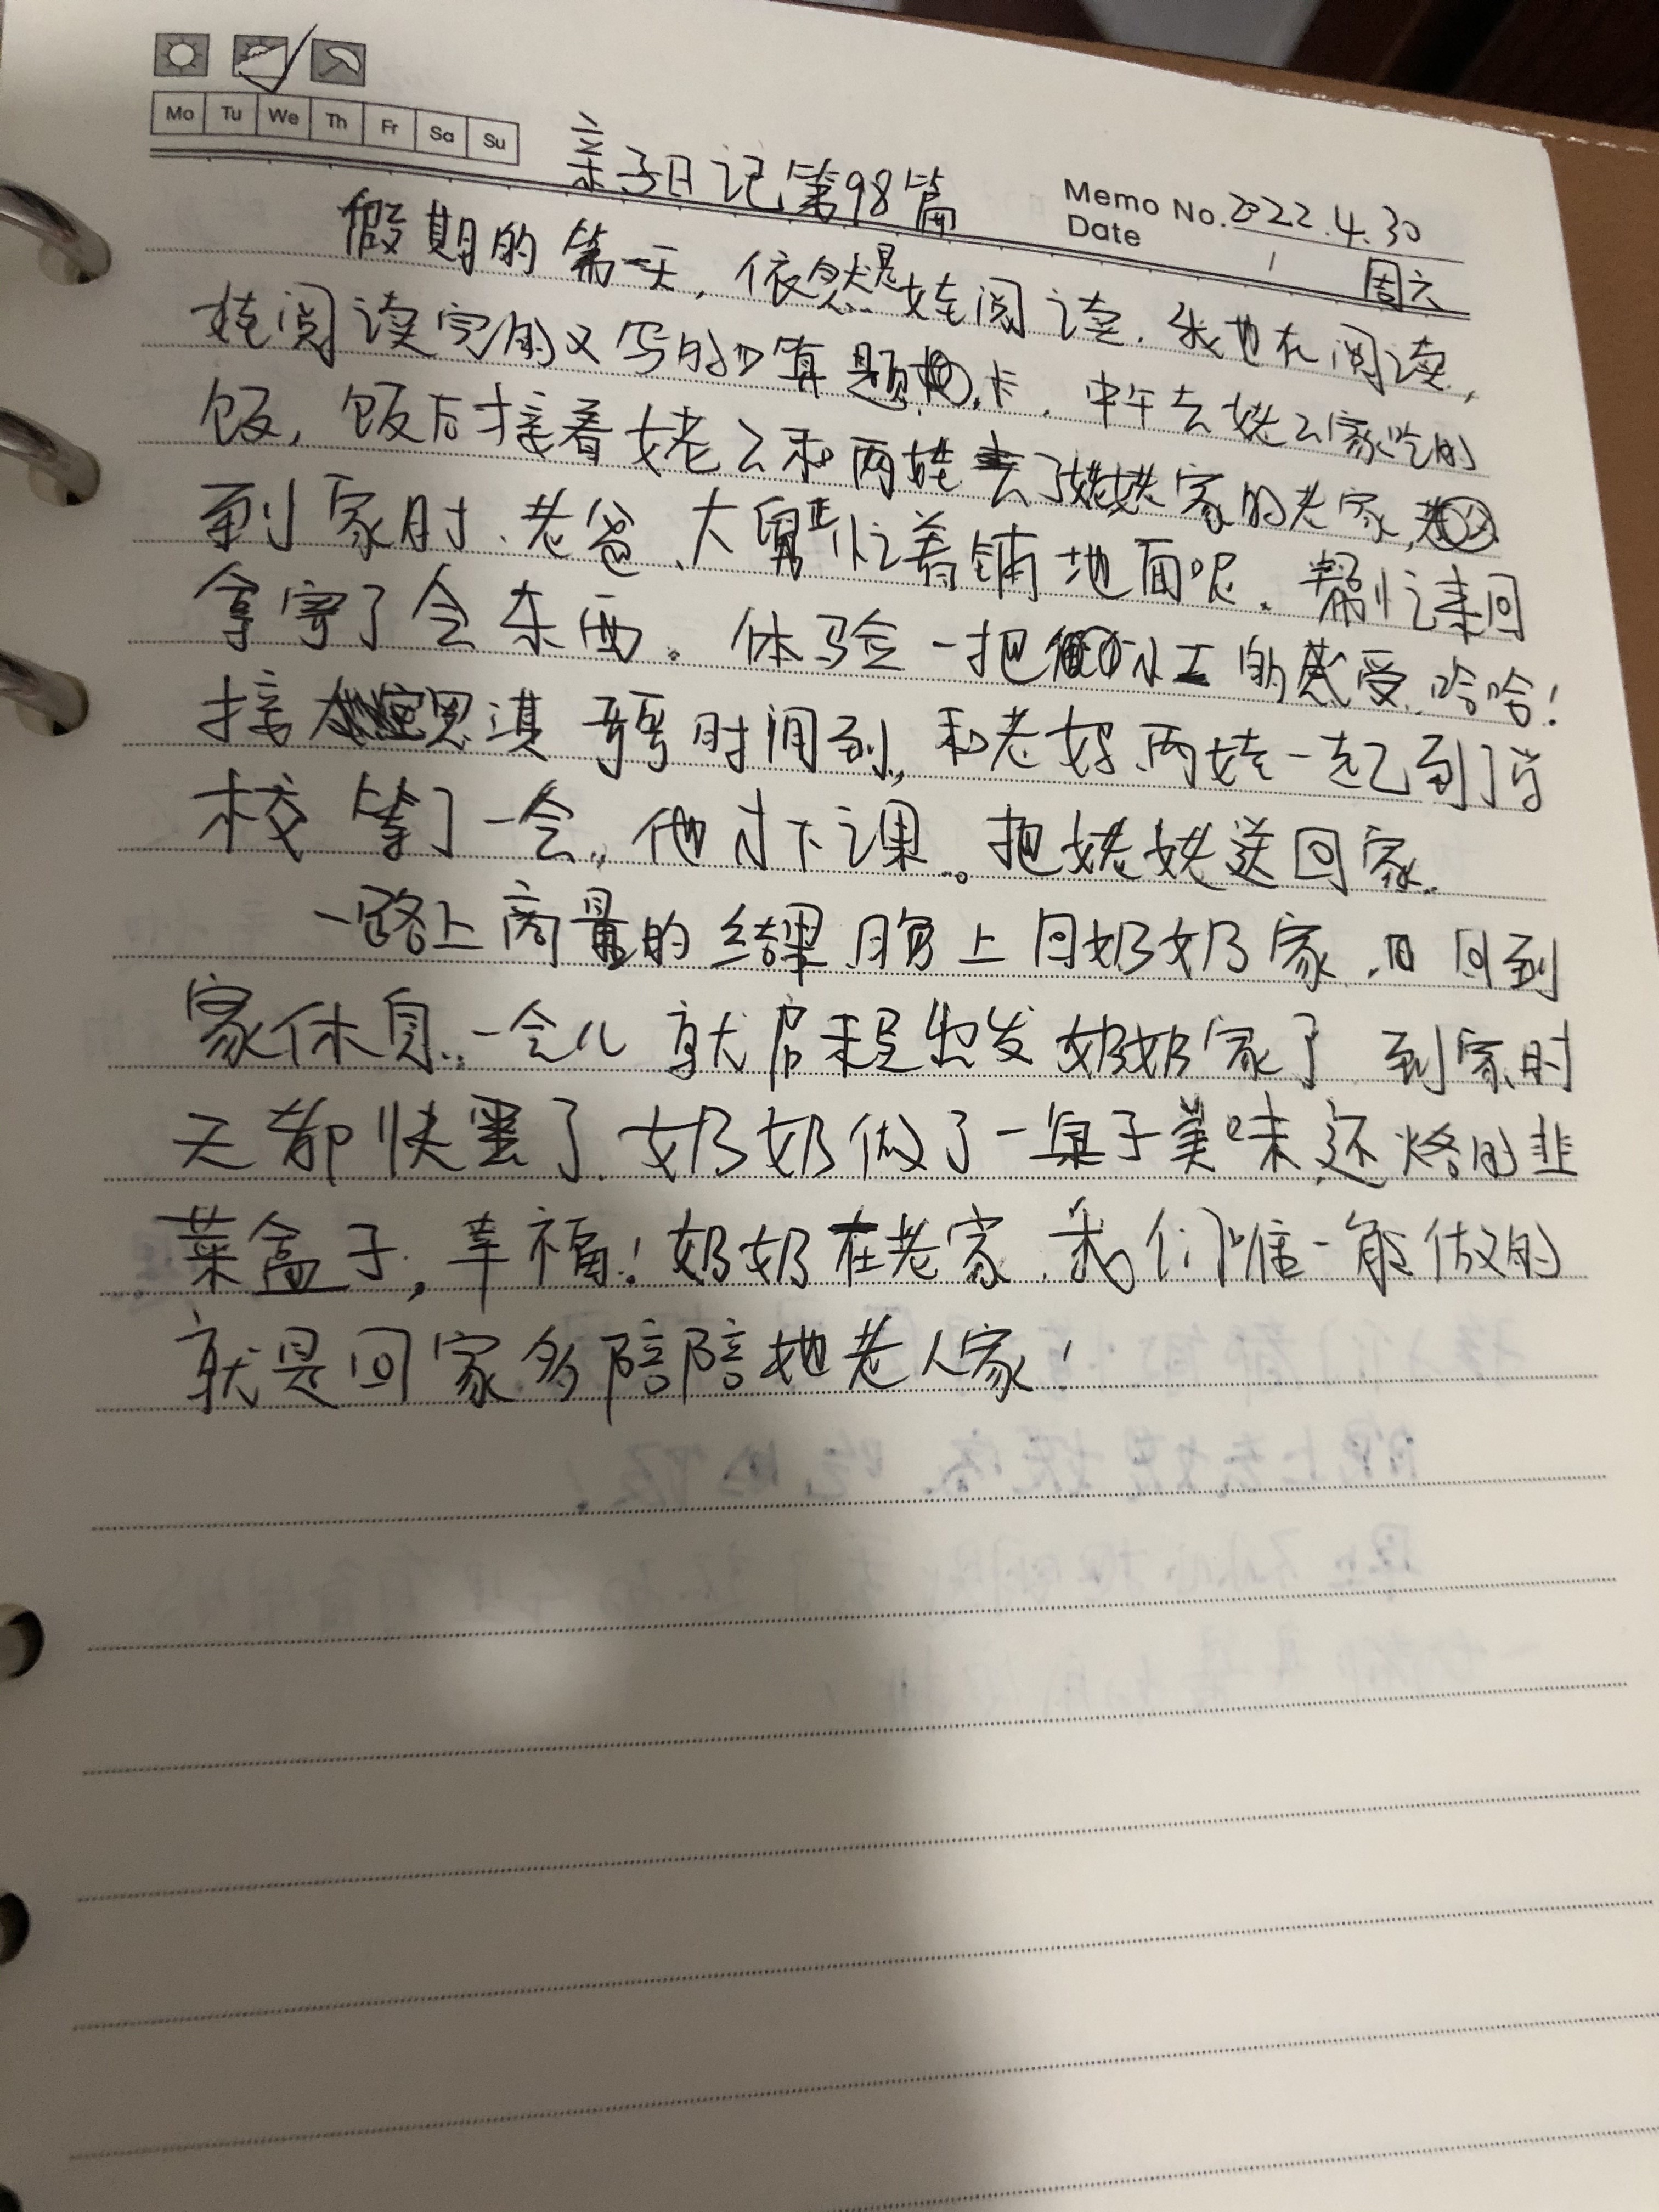 Mo Tu We Th Fr Sa Su
亲子日记第98篇
Memo No. 2022.4.30
Date 周六
假期的第一天，依然是娃阅读，我也在阅读，
娃阅读完的又写的口算题卡．中午去姥姥家吃的
饭，饭后接着姥姥和两娃去了姥姥家的老家，
到家时、老爸、大舅忙着铺地面呢．帮忙来回
拿了会东西。体验一把小工的感受．哈哈！
接思淇时间到，和老妈、两娃一起到了学
校等了一会，他才下课。把姥姥送回家．
一路上商量的结果．晚上回奶奶家．回到
家休息．一会儿就启程出发奶奶家了 到家时
天都快黑了．奶奶做了一桌子美味，还烙的韭
菜盒子，幸福！奶奶在老家．我们唯一能做的
就是回家多陪陪她老人家！